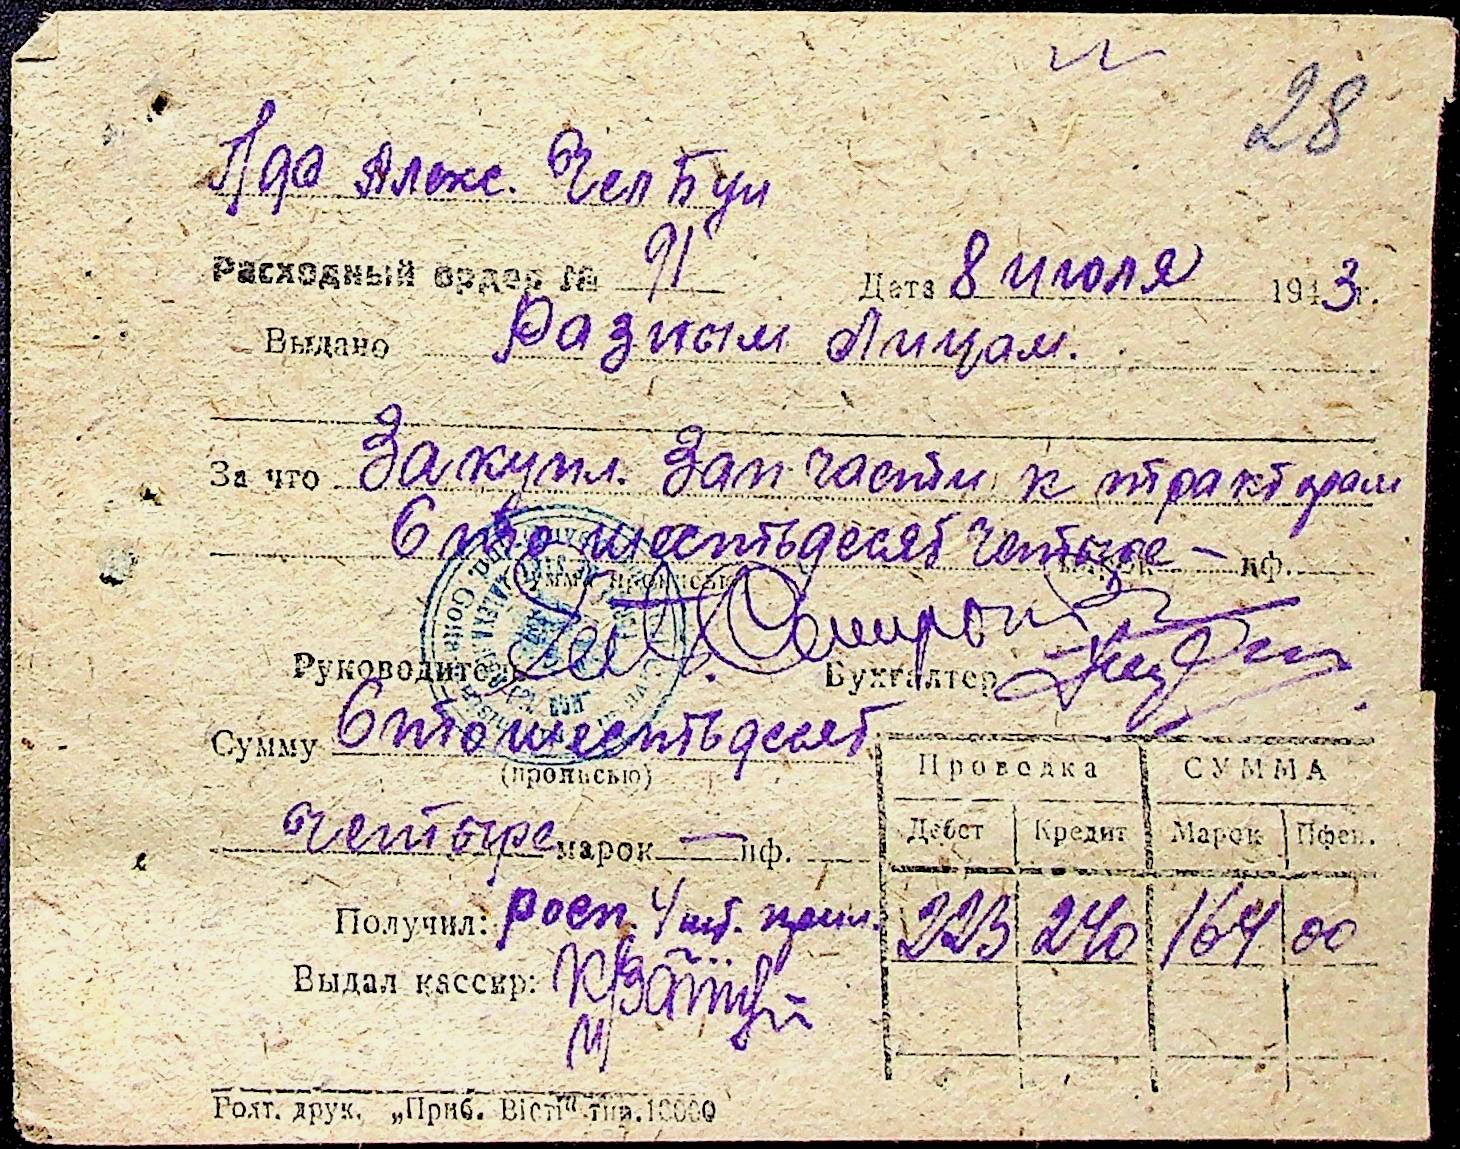 28
Алекс.
Расходный ордер № 91 Дата 8 июля 1943 г.
Выдано Разным Лицам.
За что Закупл. Зап части к тракторам
Сто шестьдесят четыре — марок — пф.
(Сумма прописью)
Руководитель Бухгалтер
Сумму Сто шестьдесят
(прописью)
четыре марок — пф.
Проводка СУММА
Дебет Кредит Марок Пфен.
223 240 164 00
Получил: росп. 4 шт. прил.
Выдал кассир:
Голт. друк. „Приб. Вісті“ тир. 10000